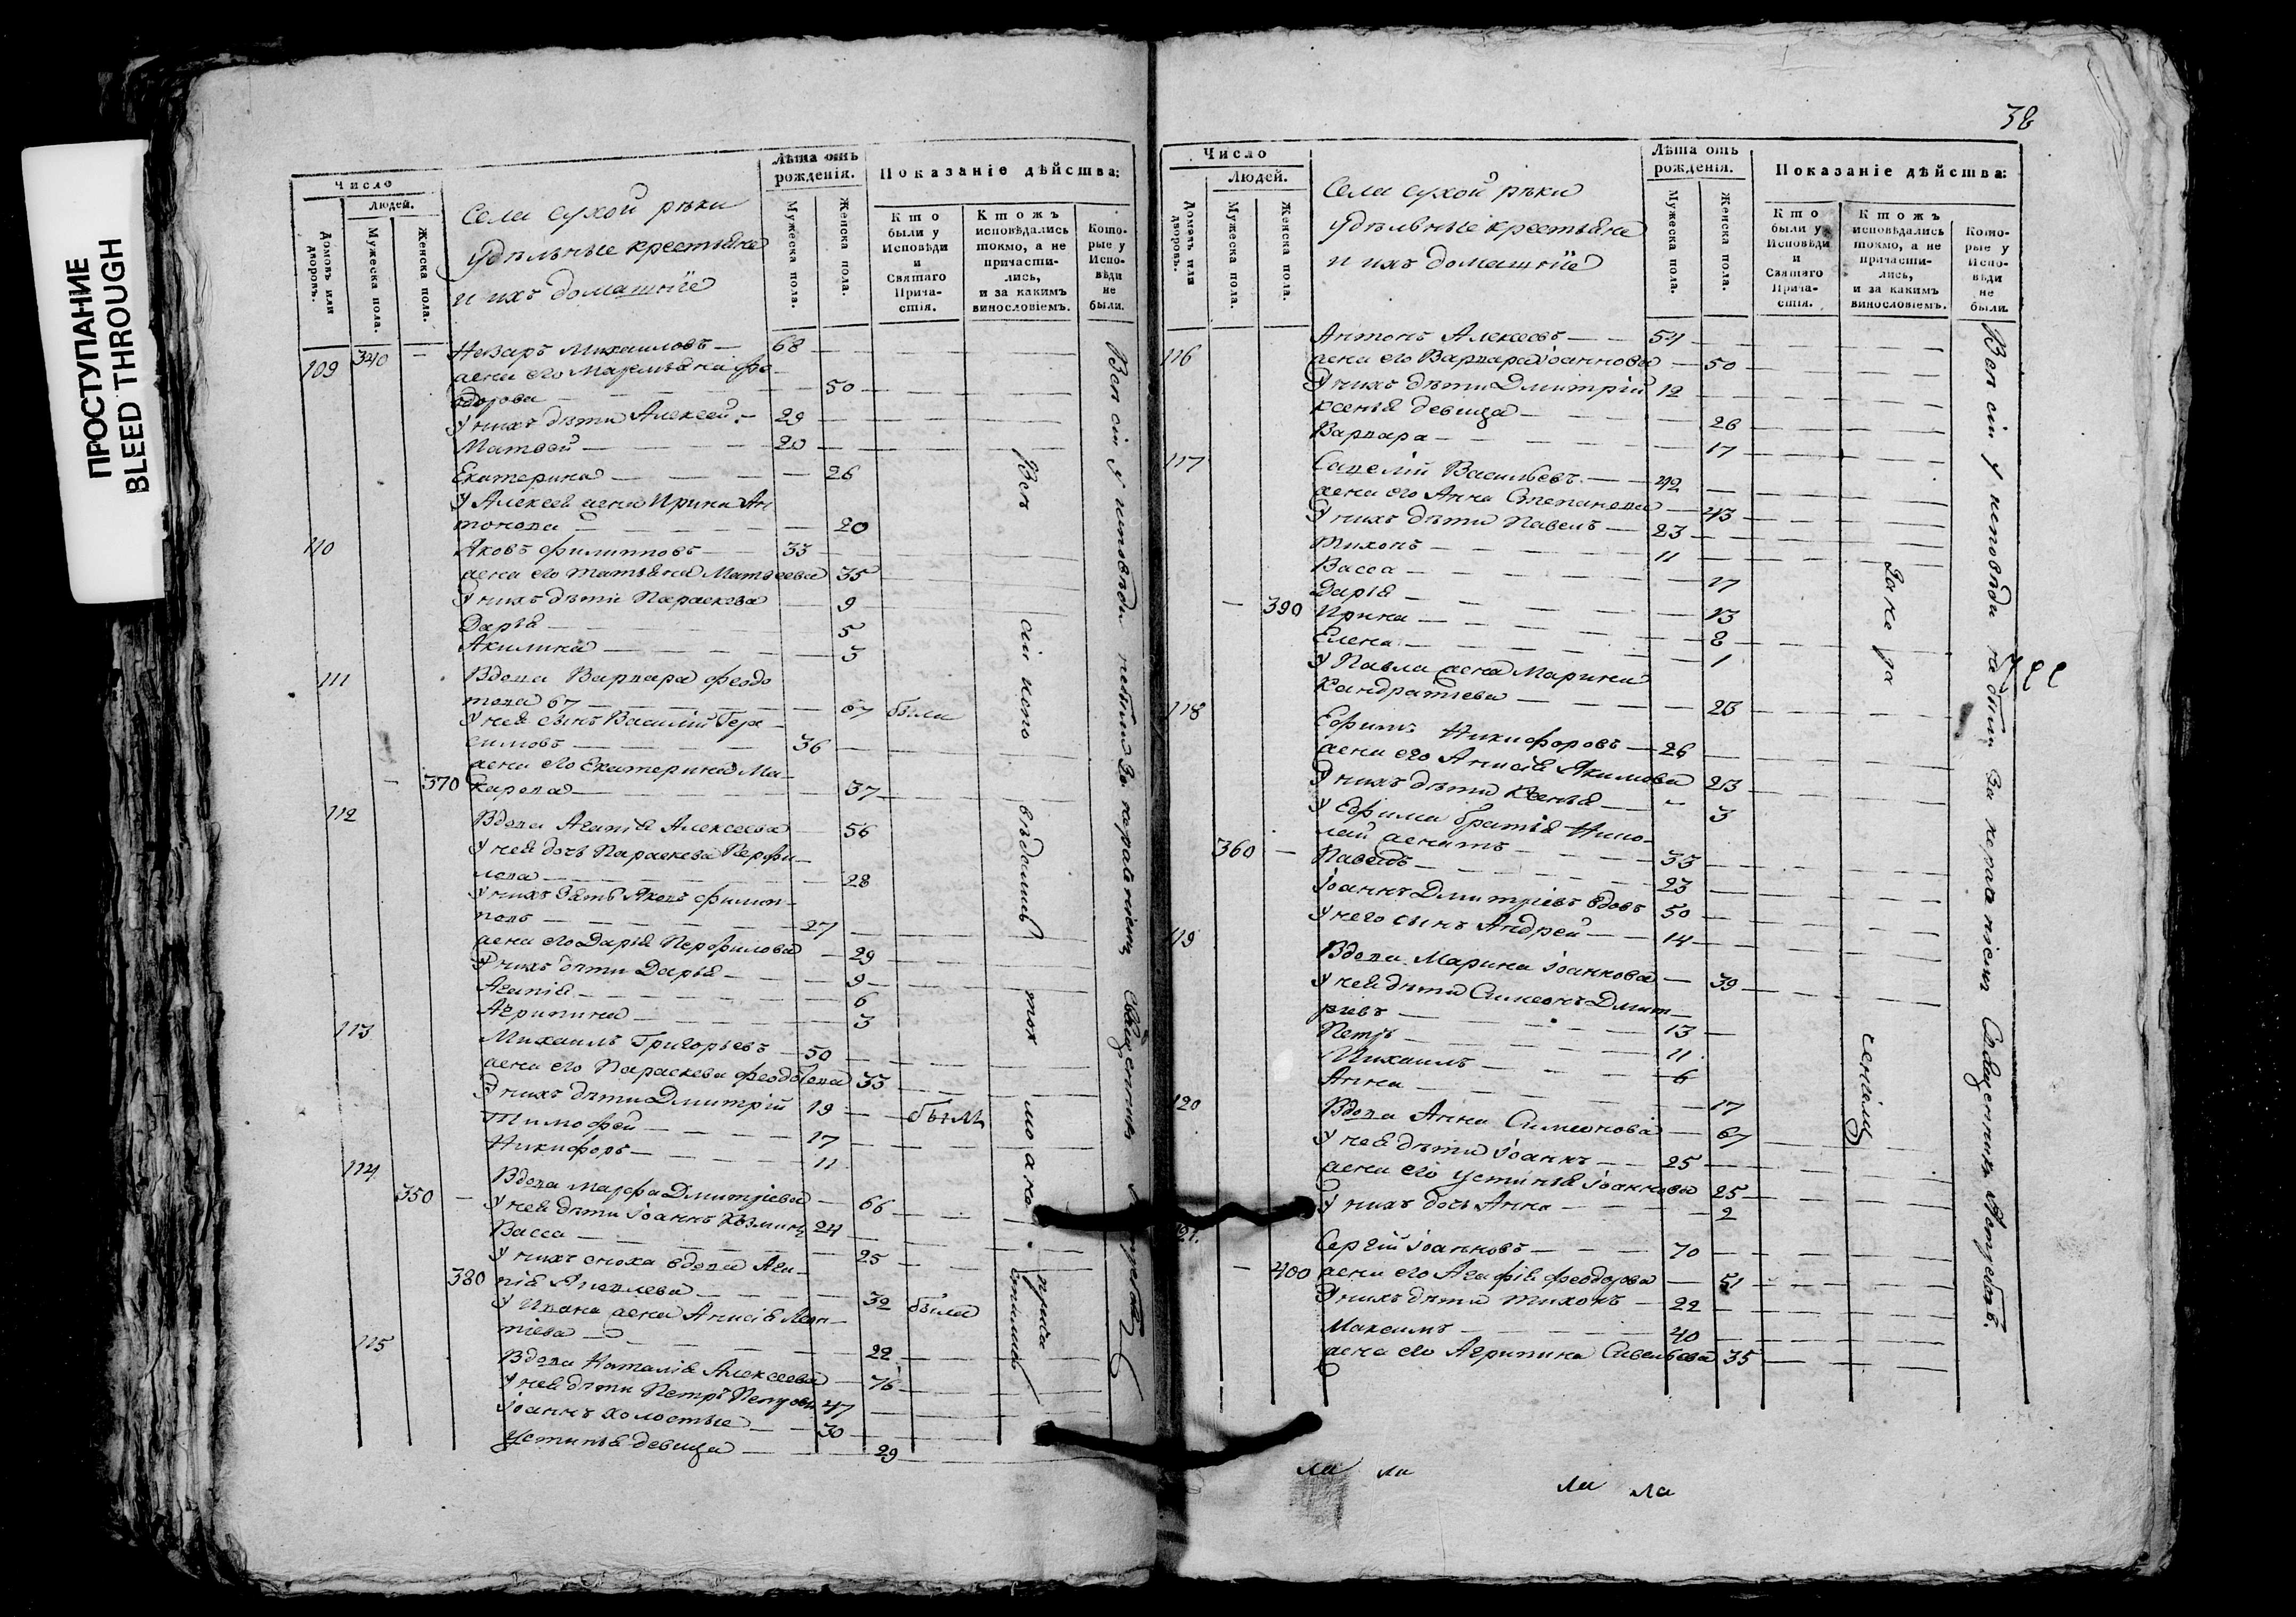 ПРОСТУПАНИЕ
BLEED THROUGH
Число
Людей.
Домовъ или дворовъ.
Мужеска пола.
Женска пола.
Села сухой рѣки
удѣльные крестьяне
и ихъ домашніе
Лѣта отъ рожденія.
Мужеска пола.
Женска пола.
Показаніе дѣйства:
Кто были у Исповѣди и Святаго Причастія.
Ктожъ исповѣдались токмо, а не причастились, и за какимъ винословіемъ.
Которые у Исповѣди не были.
109 340 — Назаръ Михаиловъ — 68
жена его Маремьяна Фе
одорова — 50
У нихъ дѣти Алексей — 29
Матвей — 20
Екатерина — 26
У Алексея жена Ирина Ан
тонова — 20
110 Яковъ Филипповъ — 33
жена его Татьяна Матвеева 35
У нихъ дѣти Параскева — 9
Дарья — 5
Акилина — 3
111 Вдова Варвара Федо
това 67 — 67 была
У ней сынъ Василій Гера
симовъ — 36
жена его Екатерина Ма-
— 370 карова — 37
112 Вдова Агапія Алексеева — 56
У ней дочь Параскева Перфи-
лова — 28
У нихъ зять Яковъ Филип-
повъ — 27
жена его Дарья Перфилова — 29
У нихъ дѣти Дарья — 9
Агапія — 6
Агрипина — 3
113 Михаилъ Григорьевъ — 50
жена его Параскева 33
У нихъ дѣти Дмитрій 19 — былъ
Тимофей — 17
Никифоръ — 11
114 350 — Вдова Марфа Дмитріева — 66
У ней дѣти Іоаннъ Козминъ 24
Васса — 25
У нихъ сноха вдова Ага-
380 пія — 32 была
У Ивана жена Анисія Леон-
тіева — 22
115 Вдова Наталія Алексеева — 76
У ней дѣти Петръ Петровъ 47
Іоаннъ холостые — 30
Устинья девица — 29
Всѣ сіи исповѣдались токмо а не причастились
Всѣ сіи у исповѣди небыли за нераченіемъ Священникъ
38
Число
Людей.
Домовъ или дворовъ.
Мужеска пола.
Женска пола.
Села сухой рѣки
удѣльные крестьяне
и ихъ домашніе
Лѣта отъ рожденія.
Мужеска пола.
Женска пола.
Показаніе дѣйства:
Кто были у Исповѣди и Святаго Причастія.
Ктожъ исповѣдались токмо, а не причастились, и за какимъ винословіемъ.
Которые у Исповѣди не были.
116 Антонъ Алексеевъ — 54
жена его Варвара Іоаннова — 50
У нихъ дѣти Дмитрій 12
Ксенья девица — 26
Варвара — 17
117 Савелій Васильевъ — 42
жена его Анна Степанова — 43
У нихъ дѣти Павелъ — 23
Тихонъ — 11
Васса — 17
Дарья — 13
— 390 Ирина — 8
Елена — 1
У Павла жена Марина
Кандратіева — 23
118 Ефимъ Никифоровъ — 26
жена его Анисія Якимова 23
У нихъ дѣти Ксенья — 3
У Ефима братья Нико-
лай женатъ — 33
360 — Павелъ — 23
Іоаннъ Дмитріевъ вдовъ 50
У него сынъ Андрей — 14
119 Вдова Марина Іоаннова — 39
У ней дѣти Симеонъ Дмит-
ріевъ — 13
Петръ — 11
Михаилъ — 6
Анна — 17
120 Вдова Анна Симеонова — 67
У ней дѣти Іоаннъ — 25
жена его Устинья Іоаннова 25
У нихъ дочь Анна — 2
121. Сергій Іоанновъ — 70
— 400 жена его Агафія Феодорова — 51
У нихъ дѣти Тихонъ — 22
Максимъ — 40
жена его Агрипина Савельева 35
За нераченіемъ
Всѣ сіи у исповѣди не были за нераченіемъ Священникъ
ла ла ла ла